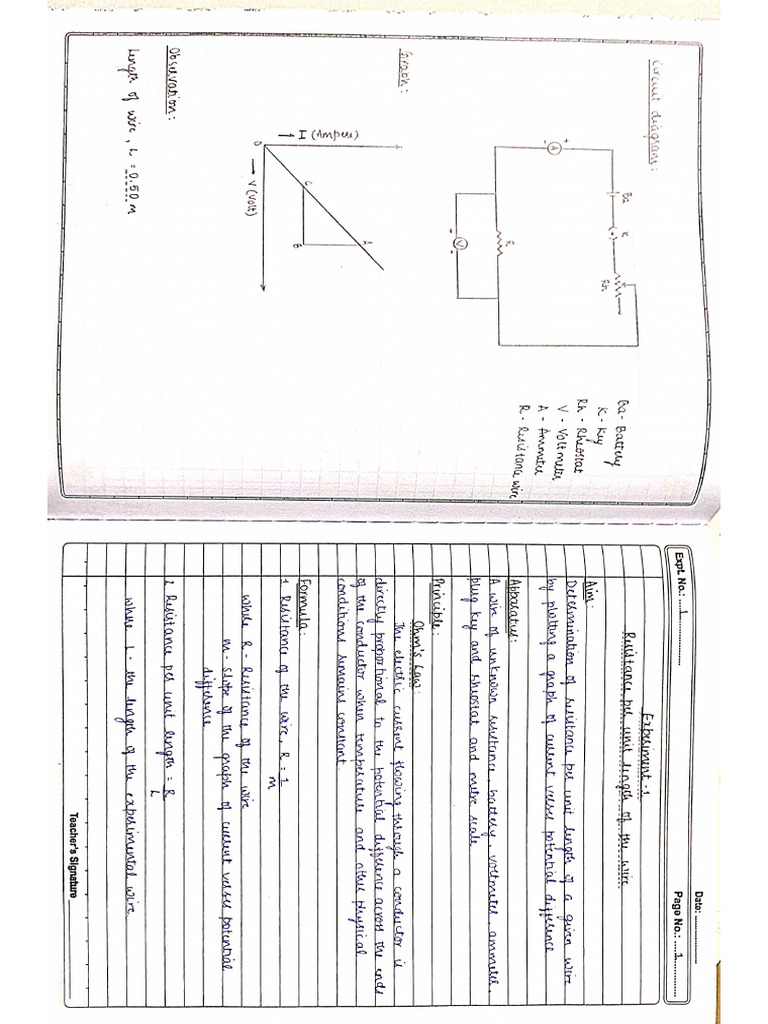 Circuit diagram:
Ba
K
Rh
+
A
-
R
+
V
-
Ba - Battery
K - Key
Rh - Rheostat
V - Voltmeter
A - Ammeter
R - Resistance wire
Graph:
→ I (Ampere)
A
C
B
O
→ V (Volt)
Observation:
Length of wire, L = 0.50 m
Date:
Expt. No.: 1
Page No.: 1
Experiment - 1
Resistance per unit length of the wire
Aim:
Determination of resistance per unit length of a given wire
by plotting a graph of current verses potential difference
Apparatus:
A wire of unknown resistance, battery, voltmeter, ammeter,
plug key and rheostat and metre scale
Principle:
Ohm's Law:
The electric current flowing through a conductor is
directly proportional to the potential difference across the ends
of the conductor when temperature and other physical
conditions remains constant
Formula:
1. Resistance of the wire, R = 1
m
where R - Resistance of the wire
m - slope of the graph of current verses potential
difference
2. Resistance per unit length = R
L
where L - the length of the experimental wire
Teacher's Signature